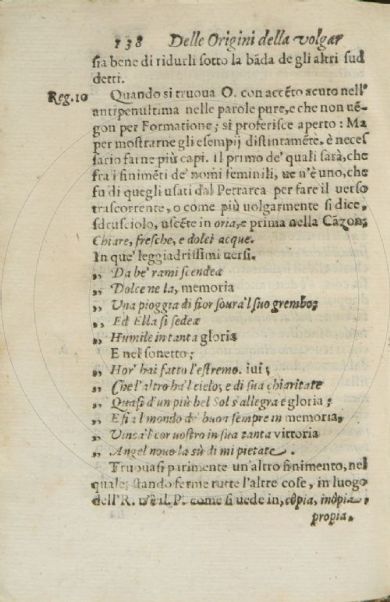 138 Delle Origini della volgar
sia bene di ridurli sotto la bāda de gli altri sud
detti.
Reg.10 Quando si truova O. con accēto acuto nell'
antipenultima nelle parole pure, e che non vē-
gon per Formatione; si proferisce aperto: Ma
per mostrarne gli esempij distintamēte, è neces
sario farne più capi. Il primo de' quali sarà, che
fra i finimēti de' nomi feminili, ue n'è uno, che
fu di quegli usati dal Petrarca per fare il verso
trascorrente, o come più volgarmente si dice,
sdrusciolo, uscēte in oria, e prima nella Cāzon;
Chiare, fresche, e dolci acque.
In que' leggiadrissimi uersi.
„ Da be' rami scendea
„ Dolce ne la, memoria
„ Una pioggia di fior soura'l suo grembo;
„ Ed Ella si sedea
„ Humile in tanta gloria
E nel sonetto;
„ Hor' hai fatto l'estremo. iui;
„ Che l'altro ha'l cielo; e di sua chiaritate
„ Quasi d'un più bel Sol s'allegra e gloria;
„ E fia'l mondo de' buon sempre in memoria,
„ Vinca'l cor uostro in sua tanta vittoria
„ Angel nouo la sù di mi pietate.
Truouasi parimente un'altro finimento, nel
quale, stando ferme tutte l'altre cose, in luogo
dell'R. v'è il P. come si uede in, còpia, inòpia,
propia.